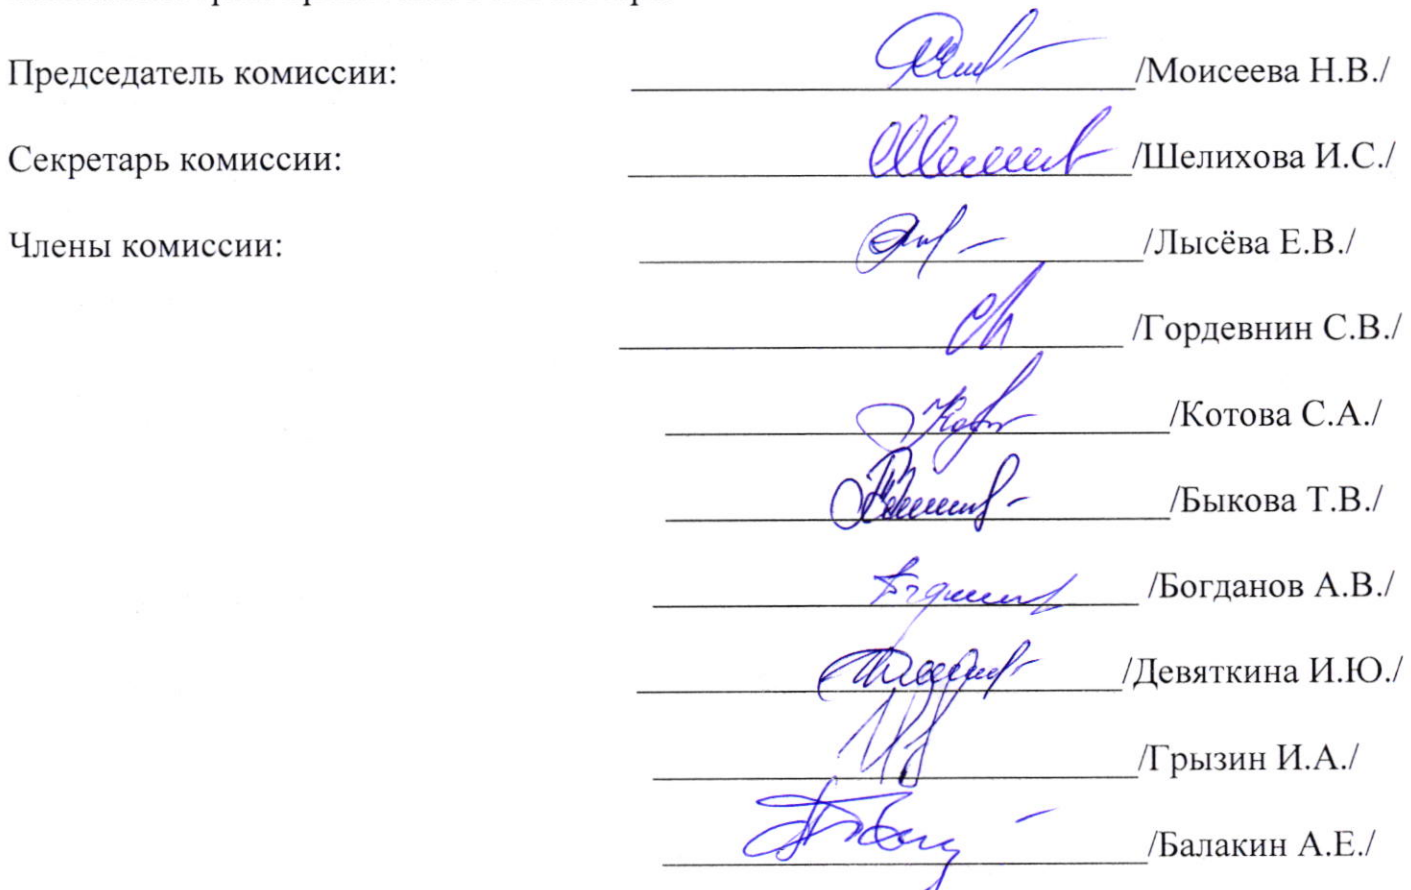 Председатель комиссии: /Моисеева Н.В./
Секретарь комиссии: /Шелихова И.С./
Члены комиссии: /Лысёва Е.В./
/Гордевнин С.В./
/Котова С.А./
/Быкова Т.В./
/Богданов А.В./
/Девяткина И.Ю./
/Грызин И.А./
/Балакин А.Е./